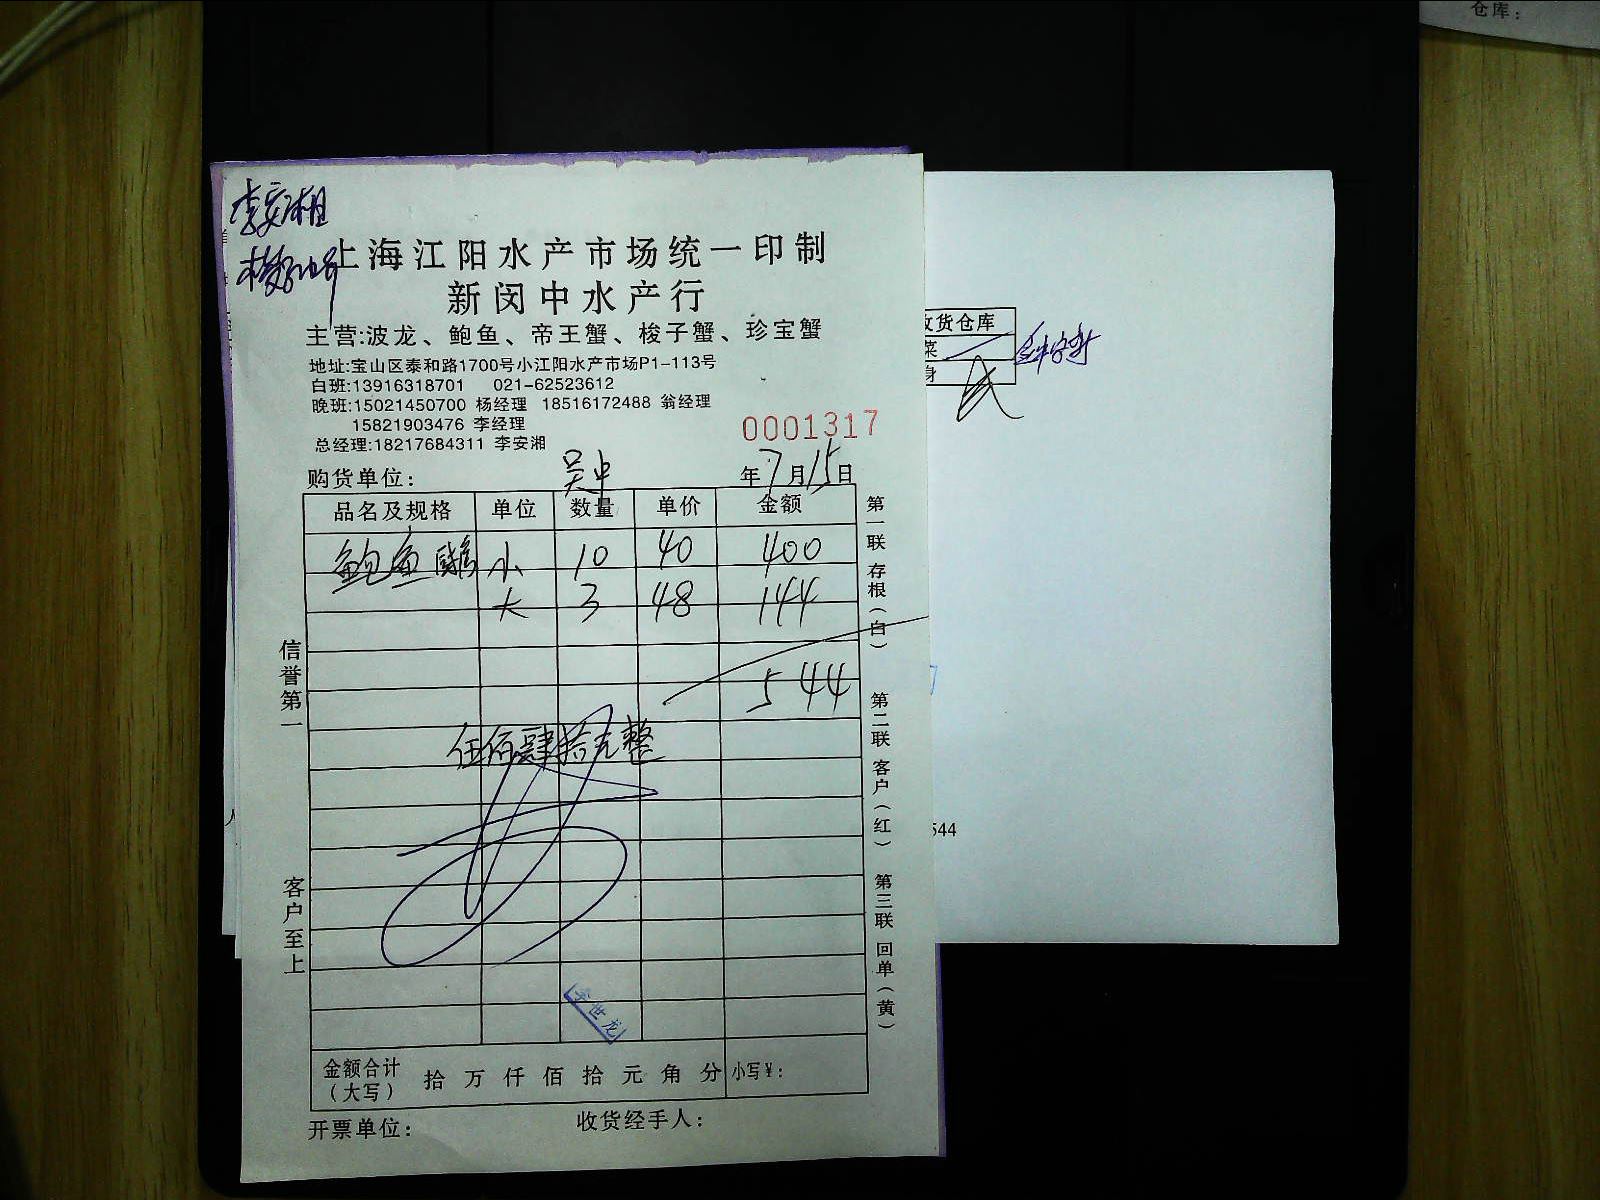 仓库：
上海江阳水产市场统一印制
新闵中水产行
主营:波龙、鲍鱼、帝王蟹、梭子蟹、珍宝蟹
地址:宝山区泰和路1700号小江阳水产市场P1-113号
白班:13916318701 021-62523612
晚班:15021450700 杨经理 18516172488 翁经理
15821903476 李经理
总经理:18217684311 李安湘
0001317
购货单位: 吴中 年7月15日
品名及规格 单位 数量 单价 金额
鲍鱼 小 10 40 400
大 3 48 144
544
伍佰肆拾 元整
金额合计（大写） 拾 万 仟 佰 拾 元 角 分 小写¥:
开票单位: 收货经手人:
信誉第一
客户至上
第一联 存根（白）
第二联 客户（红）
第三联 回单（黄）
李世龙
李安湘
收货仓库
菜
身
544